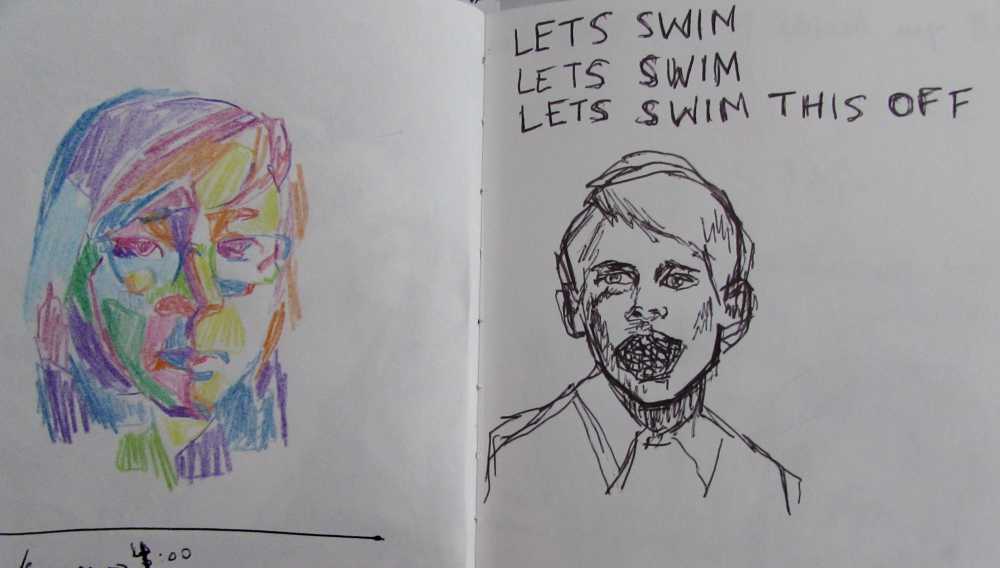 LETS SWIM
LETS SWIM
LETS SWIM THIS OFF
4:00